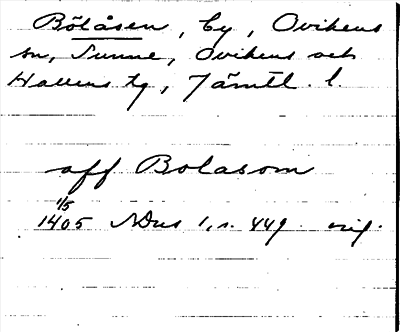 Bölåsen, by, Ovikens
sn, Sunne, Ovikens och
Hallens tg, Jämtl. l.
aff Bolasom
1/5
1405 NDus 1, s. 449 orig.